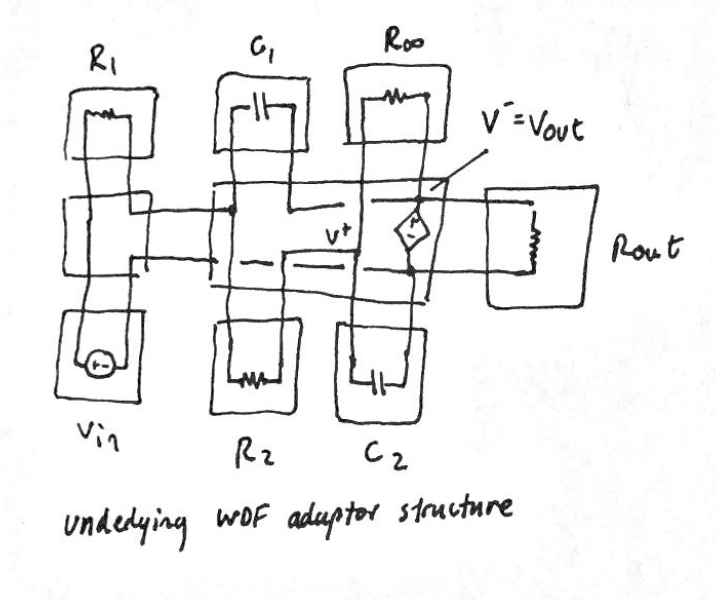 R1
C1
R∞
V⁻=Vout
V⁺
+
-
Rout
+-
Vin
R2
C2
underlying WDF adaptor structure